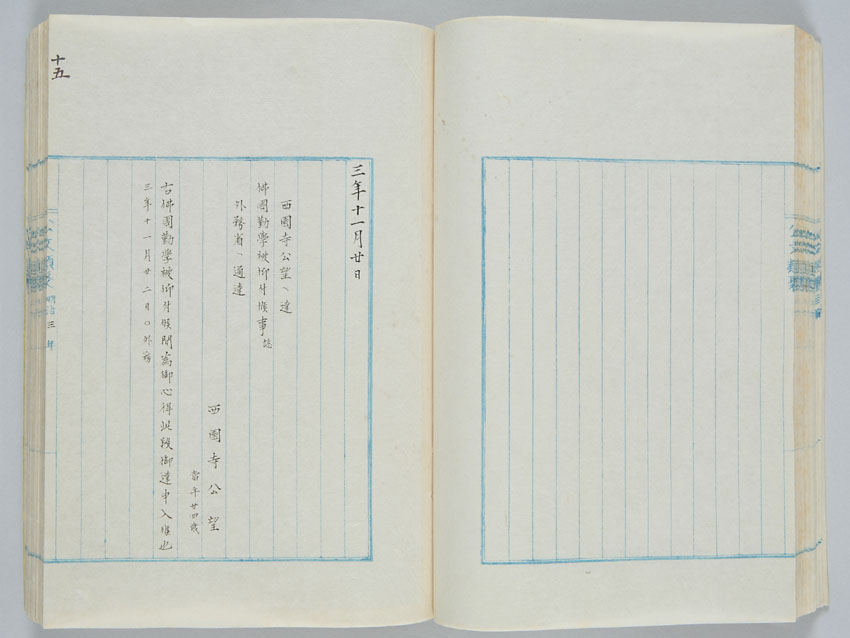 十五
三年十一月廿日
西園寺公望ヘ達
佛國勤學被仰付候事
外務省ヘ通達
西園寺公望
當年廿四歳
右佛國勤學被仰付候間爲御心得此段御達申入候也
三年十一月廿二日〇外務